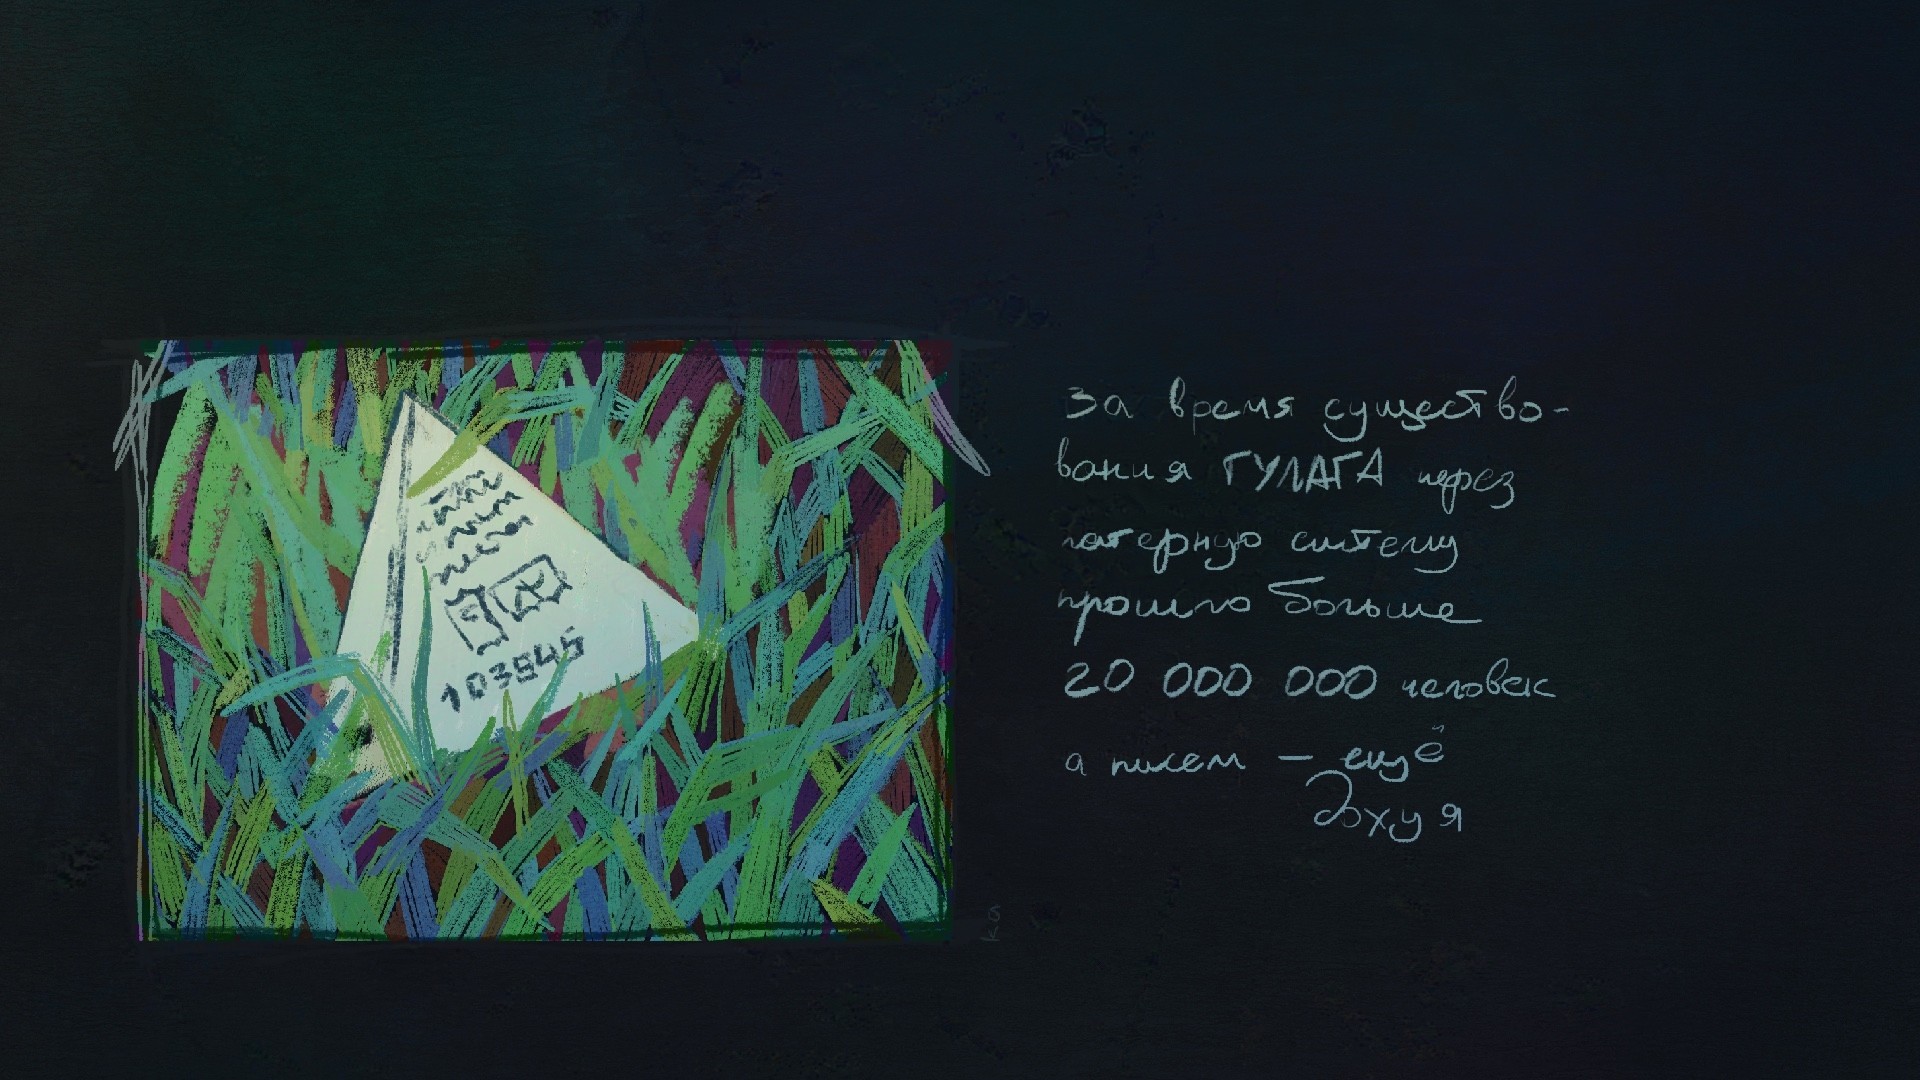 103545
за время существо-
вания ГУЛАГА через
лагерную систему
прошло больше
20 000 000 человек
а писем — ещё
дохуя
ка